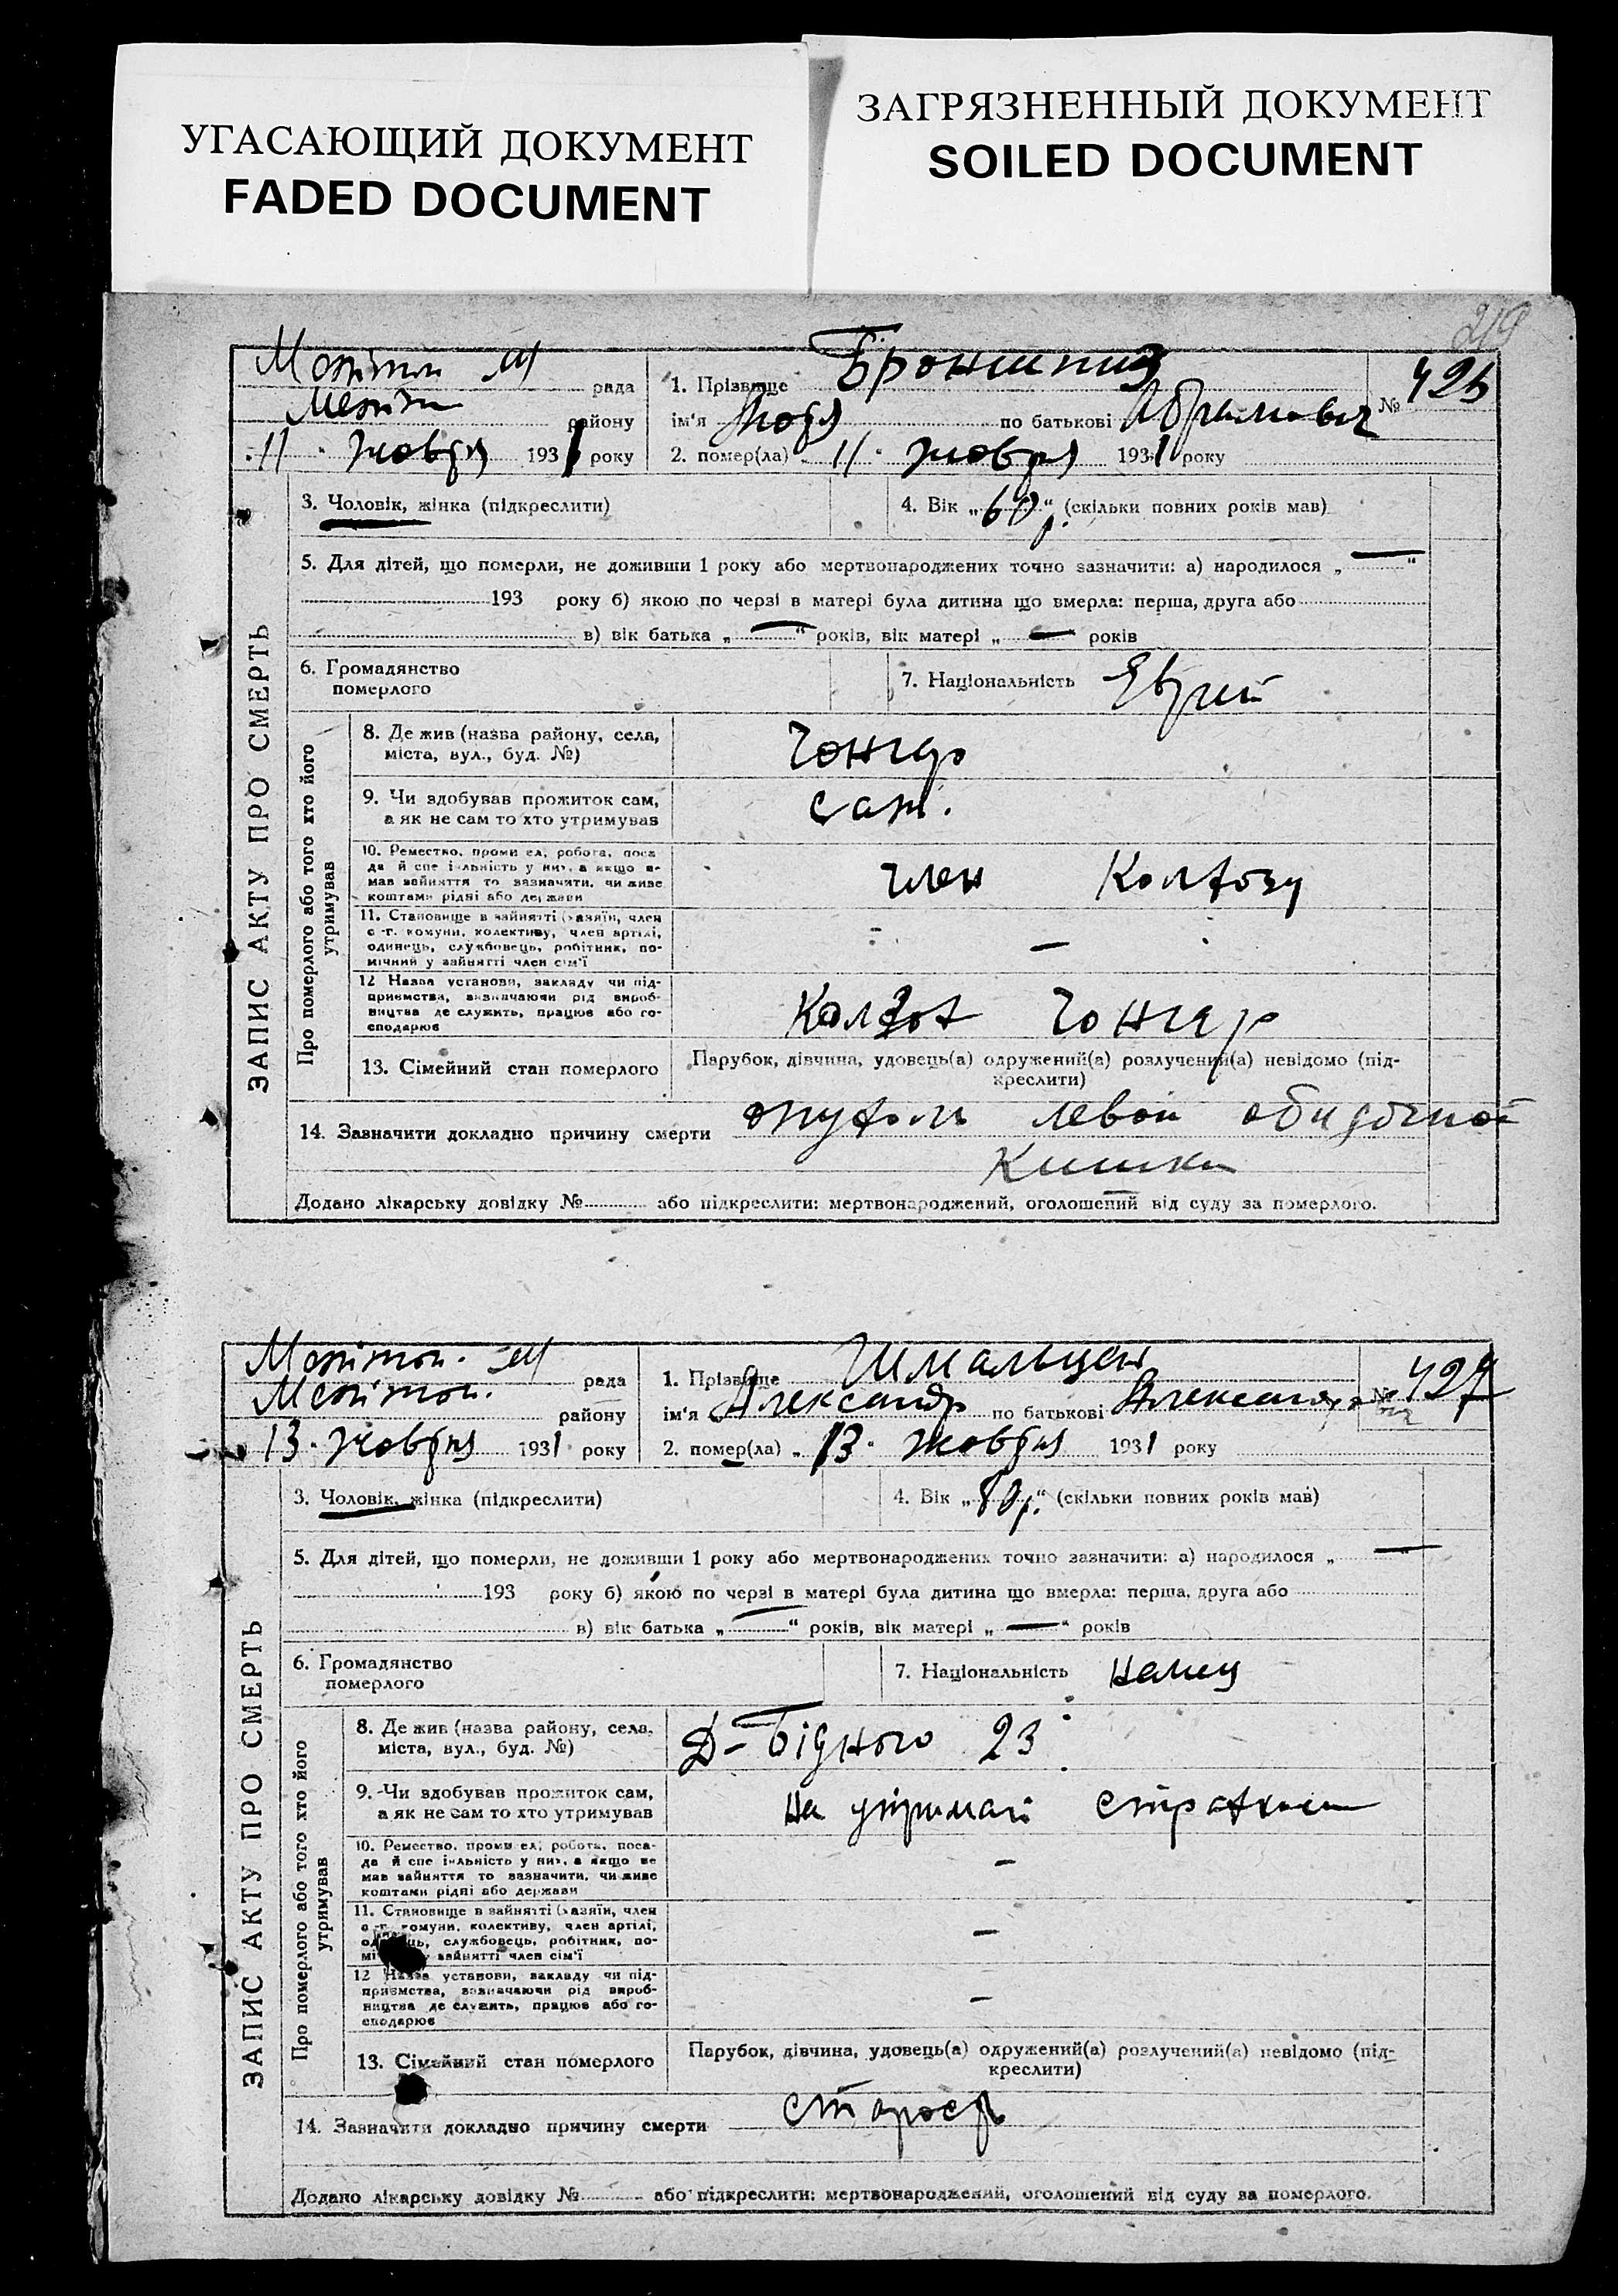 УГАСАЮЩИЙ ДОКУМЕНТ
FADED DOCUMENT
ЗАГРЯЗНЕННЫЙ ДОКУМЕНТ
SOILED DOCUMENT
рада
району
11 жовтня 1931 року
1. Прізвище
ім'я по батькові Абрамович
№ 426
2. помер(ла) 11 жовтня 1931 року
ЗАПИС АКТУ ПРО СМЕРТЬ
3. Чоловік, жінка (підкреслити)
4. Вік „60 р.“ (скільки повних років мав)
5. Для дітей, що померли, не доживши 1 року або мертвонароджених точно зазначити: а) народилося „ — “
193 року б) якою по черзі в матері була дитина що вмерла: перша, друга або
в) вік батька „ — “ років, вік матері „ — “ років
6. Громадянство
померлого
7. Національність Еврей
Про померлого або того хто його
утримував
8. Де жив (назва району, села,
міста, вул., буд. №)
Чонгар
9. Чи здобував прожиток сам,
а як не сам то хто утримував
сам.
10. Ремество, промисел, робота, поса-
да й спеціяльність у них, а якщо не
мав зайняття то зазначити, чи живе
коштами рідні або держави
член Колгозу
11. Становище в зайнятті (хазяїн, член
с.-г. комуни, колективу, член артілі,
одинець, службовець, робітник, по-
мічний у зайнятті член сім'ї
—
12 Назва установи, закладу чи під-
приємства, визначаючи рід вироб-
ництва де служить, працює або го-
сподарює
Колгоз Чонгар
13. Сімейний стан померлого
Парубок, дівчина, удовець(а) одружений(а) розлучений(а) невідомо (під-
креслити)
14. Зазначити докладно причину смерти опухоль левой ободочной
Кишки
Додано лікарську довідку № або підкреслити: мертвонароджений, оголошений від суду за померлого.
рада
району
13 жовтня 1931 року
1. Прізвище Шмальцен
ім'я Александр по батькові
№ 427
2. помер(ла) „13 жовтня 1931 року
ЗАПИС АКТУ ПРО СМЕРТЬ
3. Чоловік, жінка (підкреслити)
4. Вік „80 р.“ (скільки повних років мав)
5. Для дітей, що померли, не доживши 1 року або мертвонароджених точно зазначити: а) народилося „ — “
193 року б) якою по черзі в матері була дитина що вмерла: перша, друга або
в) вік батька „ — “ років, вік матері „ — “ років
6. Громадянство
померлого
7. Національність немец
Про померлого або того хто його
утримував
8. Де жив (назва району, села,
міста, вул., буд. №)
Д-Бідного 23
9. Чи здобував прожиток сам,
а як не сам то хто утримував
На утриман
10. Ремество, промисел, робота, поса-
да й спеціяльність у них, а якщо не
мав зайняття то зазначити, чи живе
коштами рідні або держави
—
11. Становище в зайнятті (хазяїн, член
с.-г. комуни, колективу, член артілі,
одинець, службовець, робітник, по-
мічний у зайнятті член сім'ї
—
12 Назва установи, закладу чи під-
приємства, визначаючи рід вироб-
ництва де служить, працює або го-
сподарює
—
13. Сімейний стан померлого
Парубок, дівчина, удовець(а) одружений(а) розлучений(а) невідомо (під-
креслити)
14. Зазначити докладно причину смерти
Додано лікарську довідку № або підкреслити: мертвонароджений, оголошений від суду за померлого.